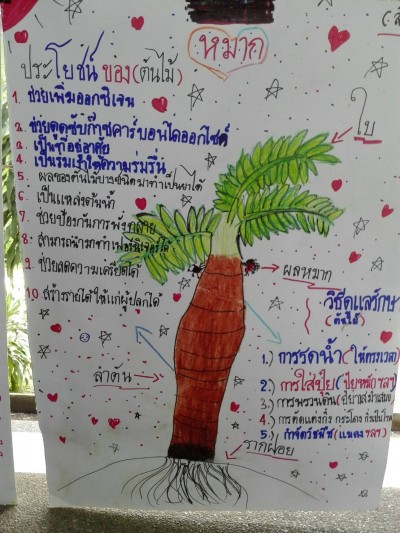 หมาก
ประโยชน์ ของ(ต้นไม้)
1. ช่วยเพิ่มออกซิเจน
2. ช่วยดูดซับก๊าซคาร์บอนไดออกไซด์
3. เป็นที่อยู่อาศัย
4. เป็นร่มเงาให้ความร่มรื่น
5. ผลของต้นไม้บางชนิดมาทำเป็นยาได้
6. เป็นแหล่งต้นน้ำ
7. ช่วยป้องกันการพังทลาย
8. สามารถนำมาทำเฟอร์นิเจอร์ได้
9. ช่วยลดความเครียดได้
10. สร้างรายได้ให้แก่ผู้ปลูกได้
ใบ
ผลหมาก
ลำต้น
รากฝอย
วิธีดูแลรักษา
(ต้นไม้)
1.) การรดน้ำ (ให้ตรงเวลา)
2.) การใส่ปุ๋ย (ปุ๋ยหมักฯลฯ)
3.) การพรวนดิน
4.) การตัดแต่งกิ่ง
5.) กำจัดวัชพืช (แมลงฯลฯ)